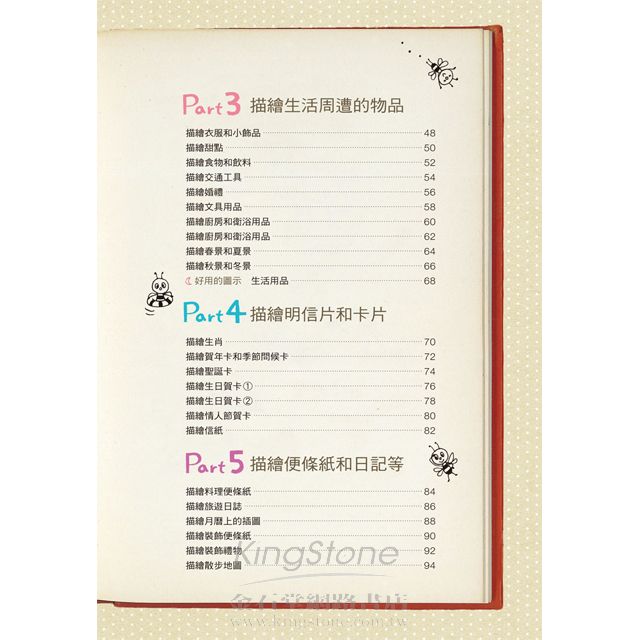 Part 3 描繪生活周遭的物品
描繪衣服和小飾品 48
描繪甜點 50
描繪食物和飲料 52
描繪交通工具 54
描繪婚禮 56
描繪文具用品 58
描繪廚房和衛浴用品 60
描繪廚房和衛浴用品 62
描繪春景和夏景 64
描繪秋景和冬景 66
好用的圖示 生活用品 68
Part 4 描繪明信片和卡片
描繪生肖 70
描繪賀年卡和季節問候卡 72
描繪聖誕卡 74
描繪生日賀卡① 76
描繪生日賀卡② 78
描繪情人節賀卡 80
描繪信紙 82
Part 5 描繪便條紙和日記等
描繪料理便條紙 84
描繪旅遊日誌 86
描繪月曆上的插圖 88
描繪裝飾便條紙 90
描繪裝飾禮物 92
描繪散步地圖 94
KingStone
金石堂網路書店
www.kingstone.com.tw